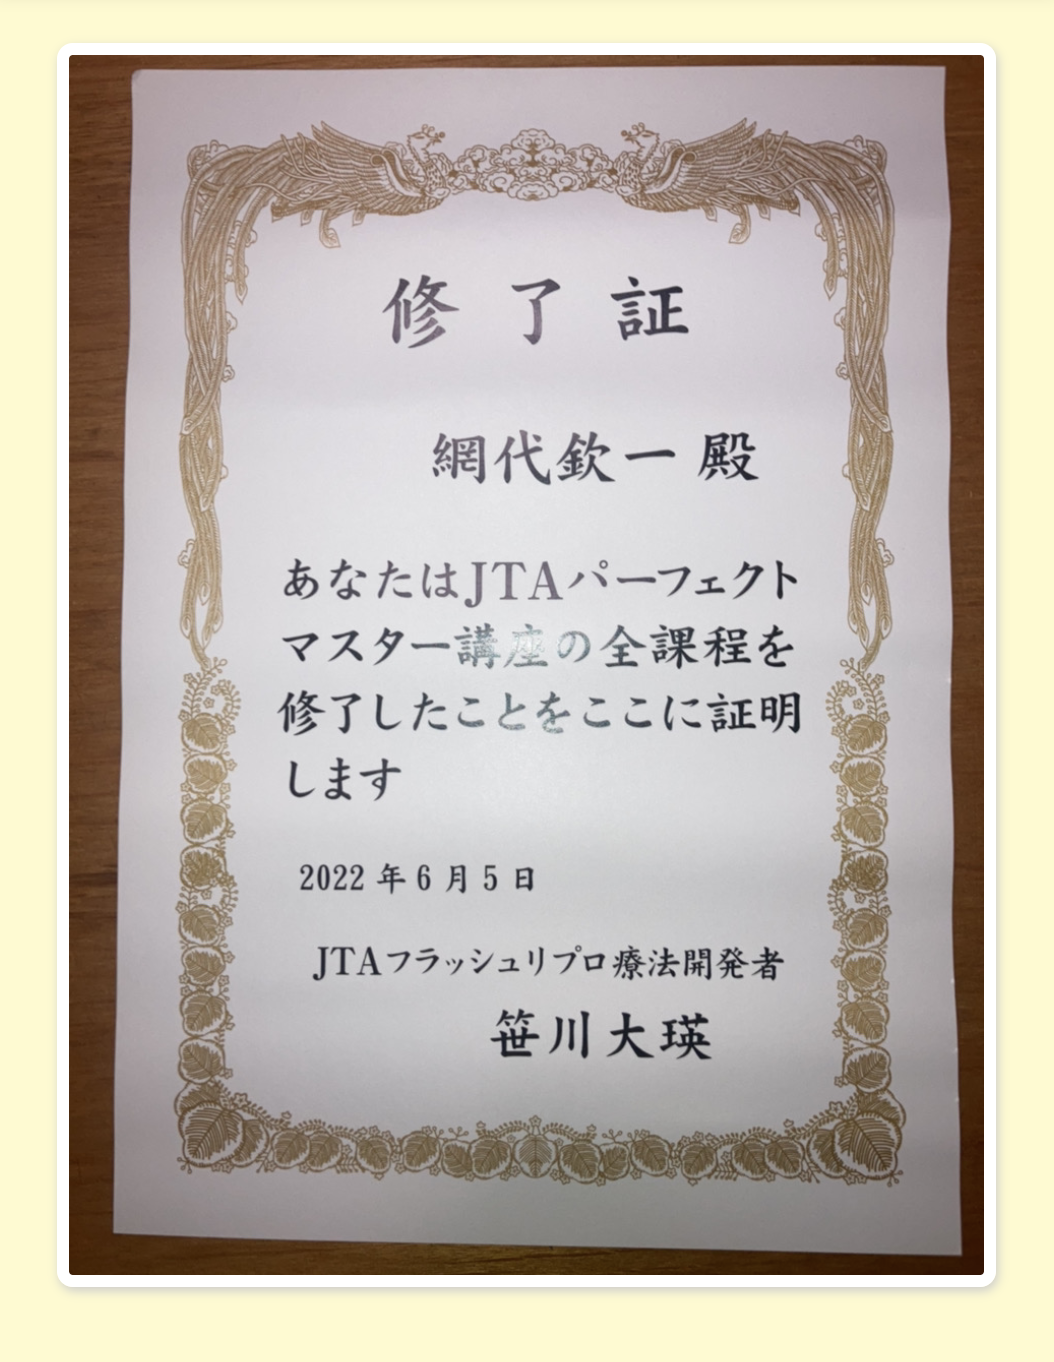 修了証
網代欽一 殿
あなたはJTAパーフェクト
マスター講座の全課程を
修了したことをここに証明
します
2022 年 6 月 5 日
JTAフラッシュリプロ療法開発者
笹川大瑛